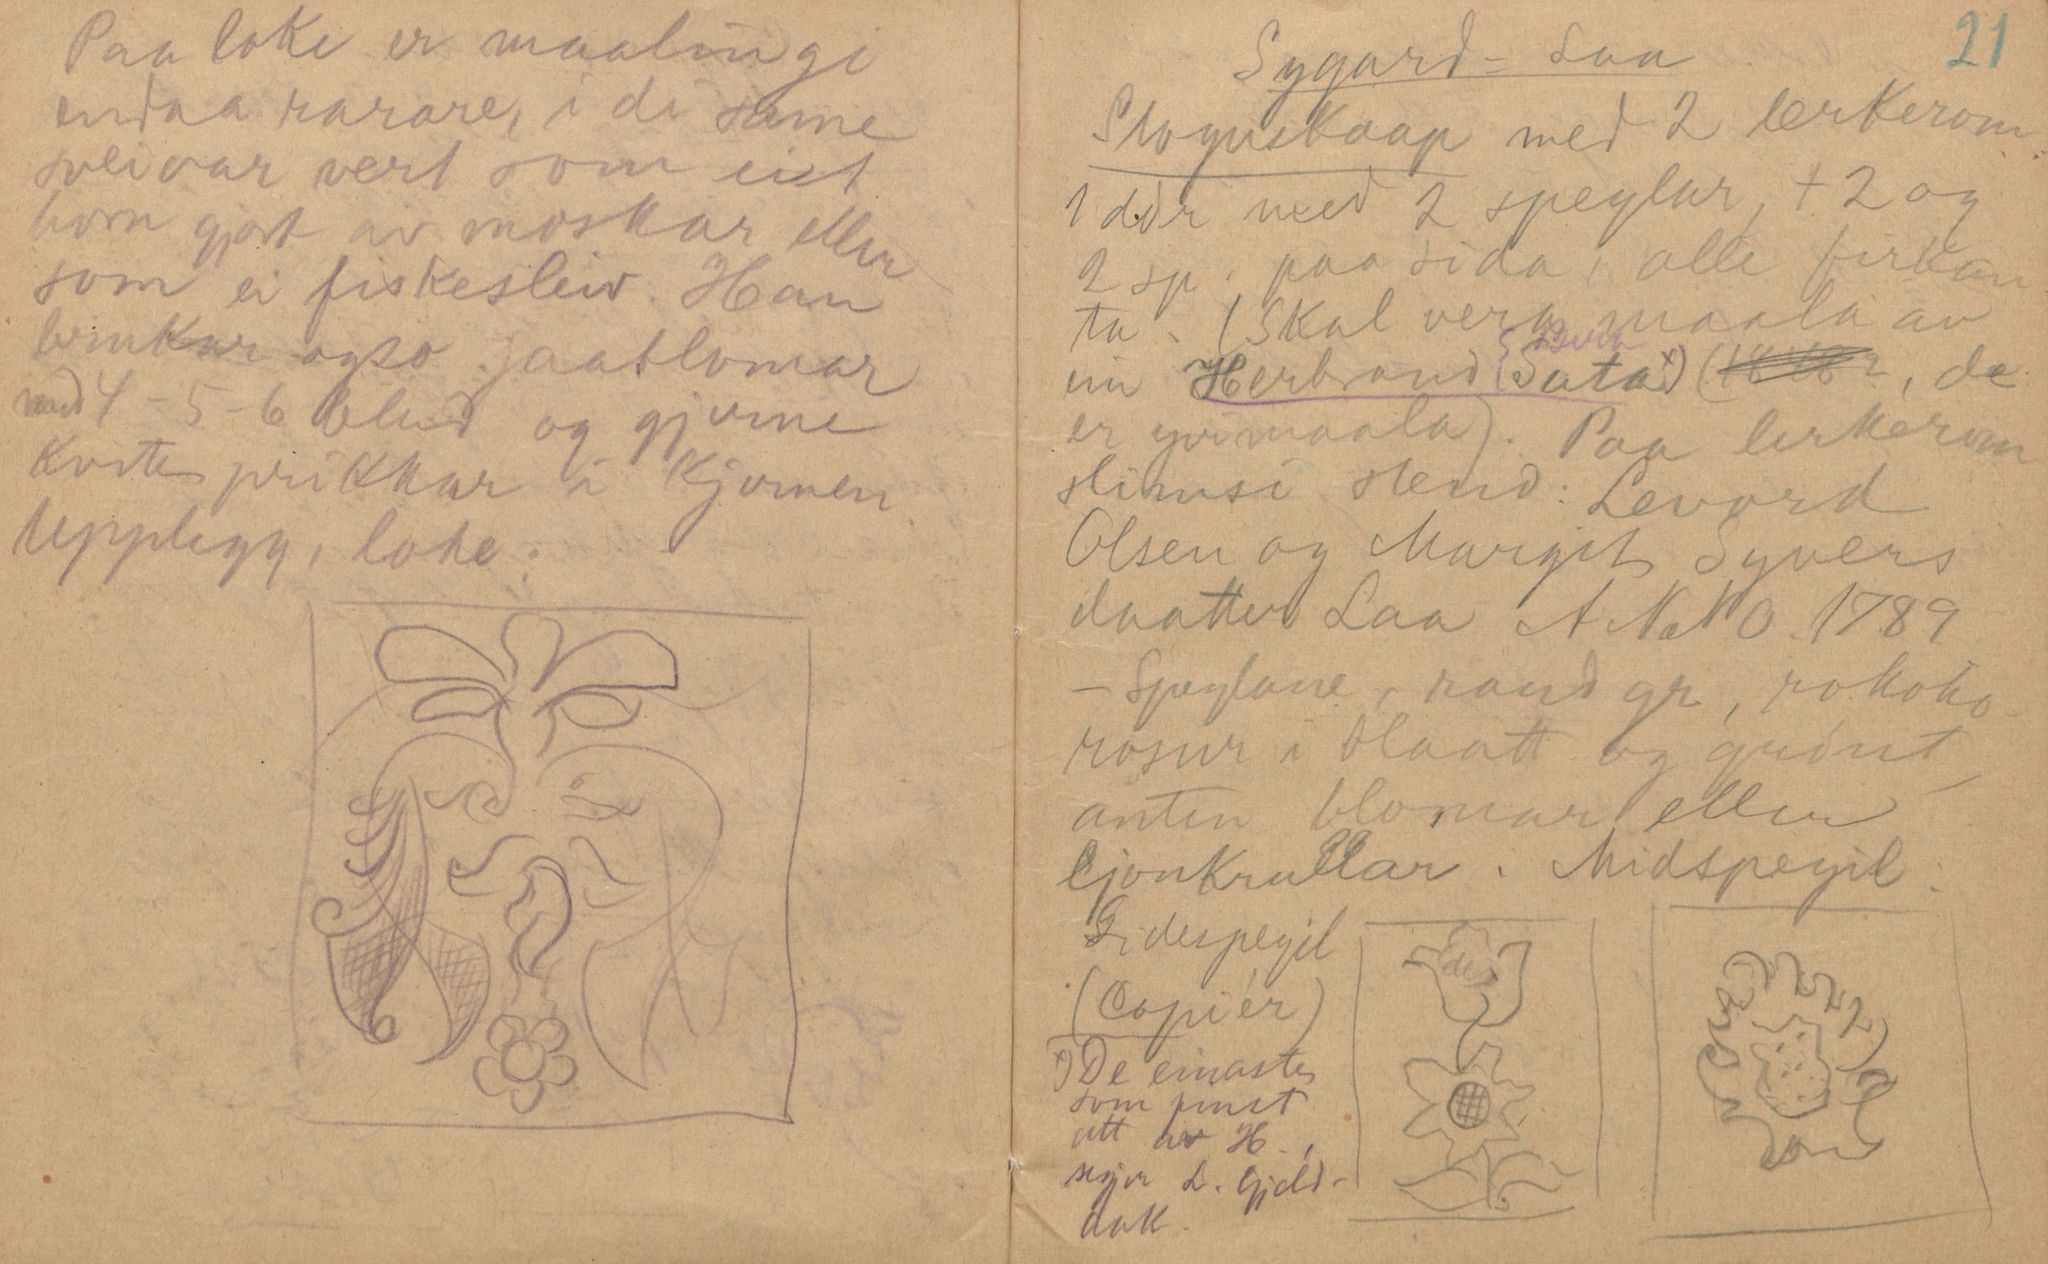 Paa loke er maalingi
endaa rarare, i di same
sveivar vert som eit
horn gjort av moskar eller
som ei fiskesleiv. Han
brukar ogso jaatlomar
med 4-5-6 blad og gjerne
kvite prikkar i kjernen
Upplegg, loke:
21
Sygard-Laa
Sloguskaap med 2 lerkerom.
1 dør med 2 speglar, + 2 og
2 sp. paa sida, alle firkan
ta. (Skal vera maala av
ein Herbrand Sata x) (1818?, de
er yvimaala). Paa lerkerom
slimsi stend: Levord
Olsen og Margit Syvers
daatter Laa ANNO. 1789
- Speglane, rand gr, rokoko
rosur i blaatt og grønt,
anten blomar eller
ljonkrullar. Midspegil.
Sidespegil
(Copier)
x) De einaste
som finst
att av H.,
segjer L. Gjeld-
aak.